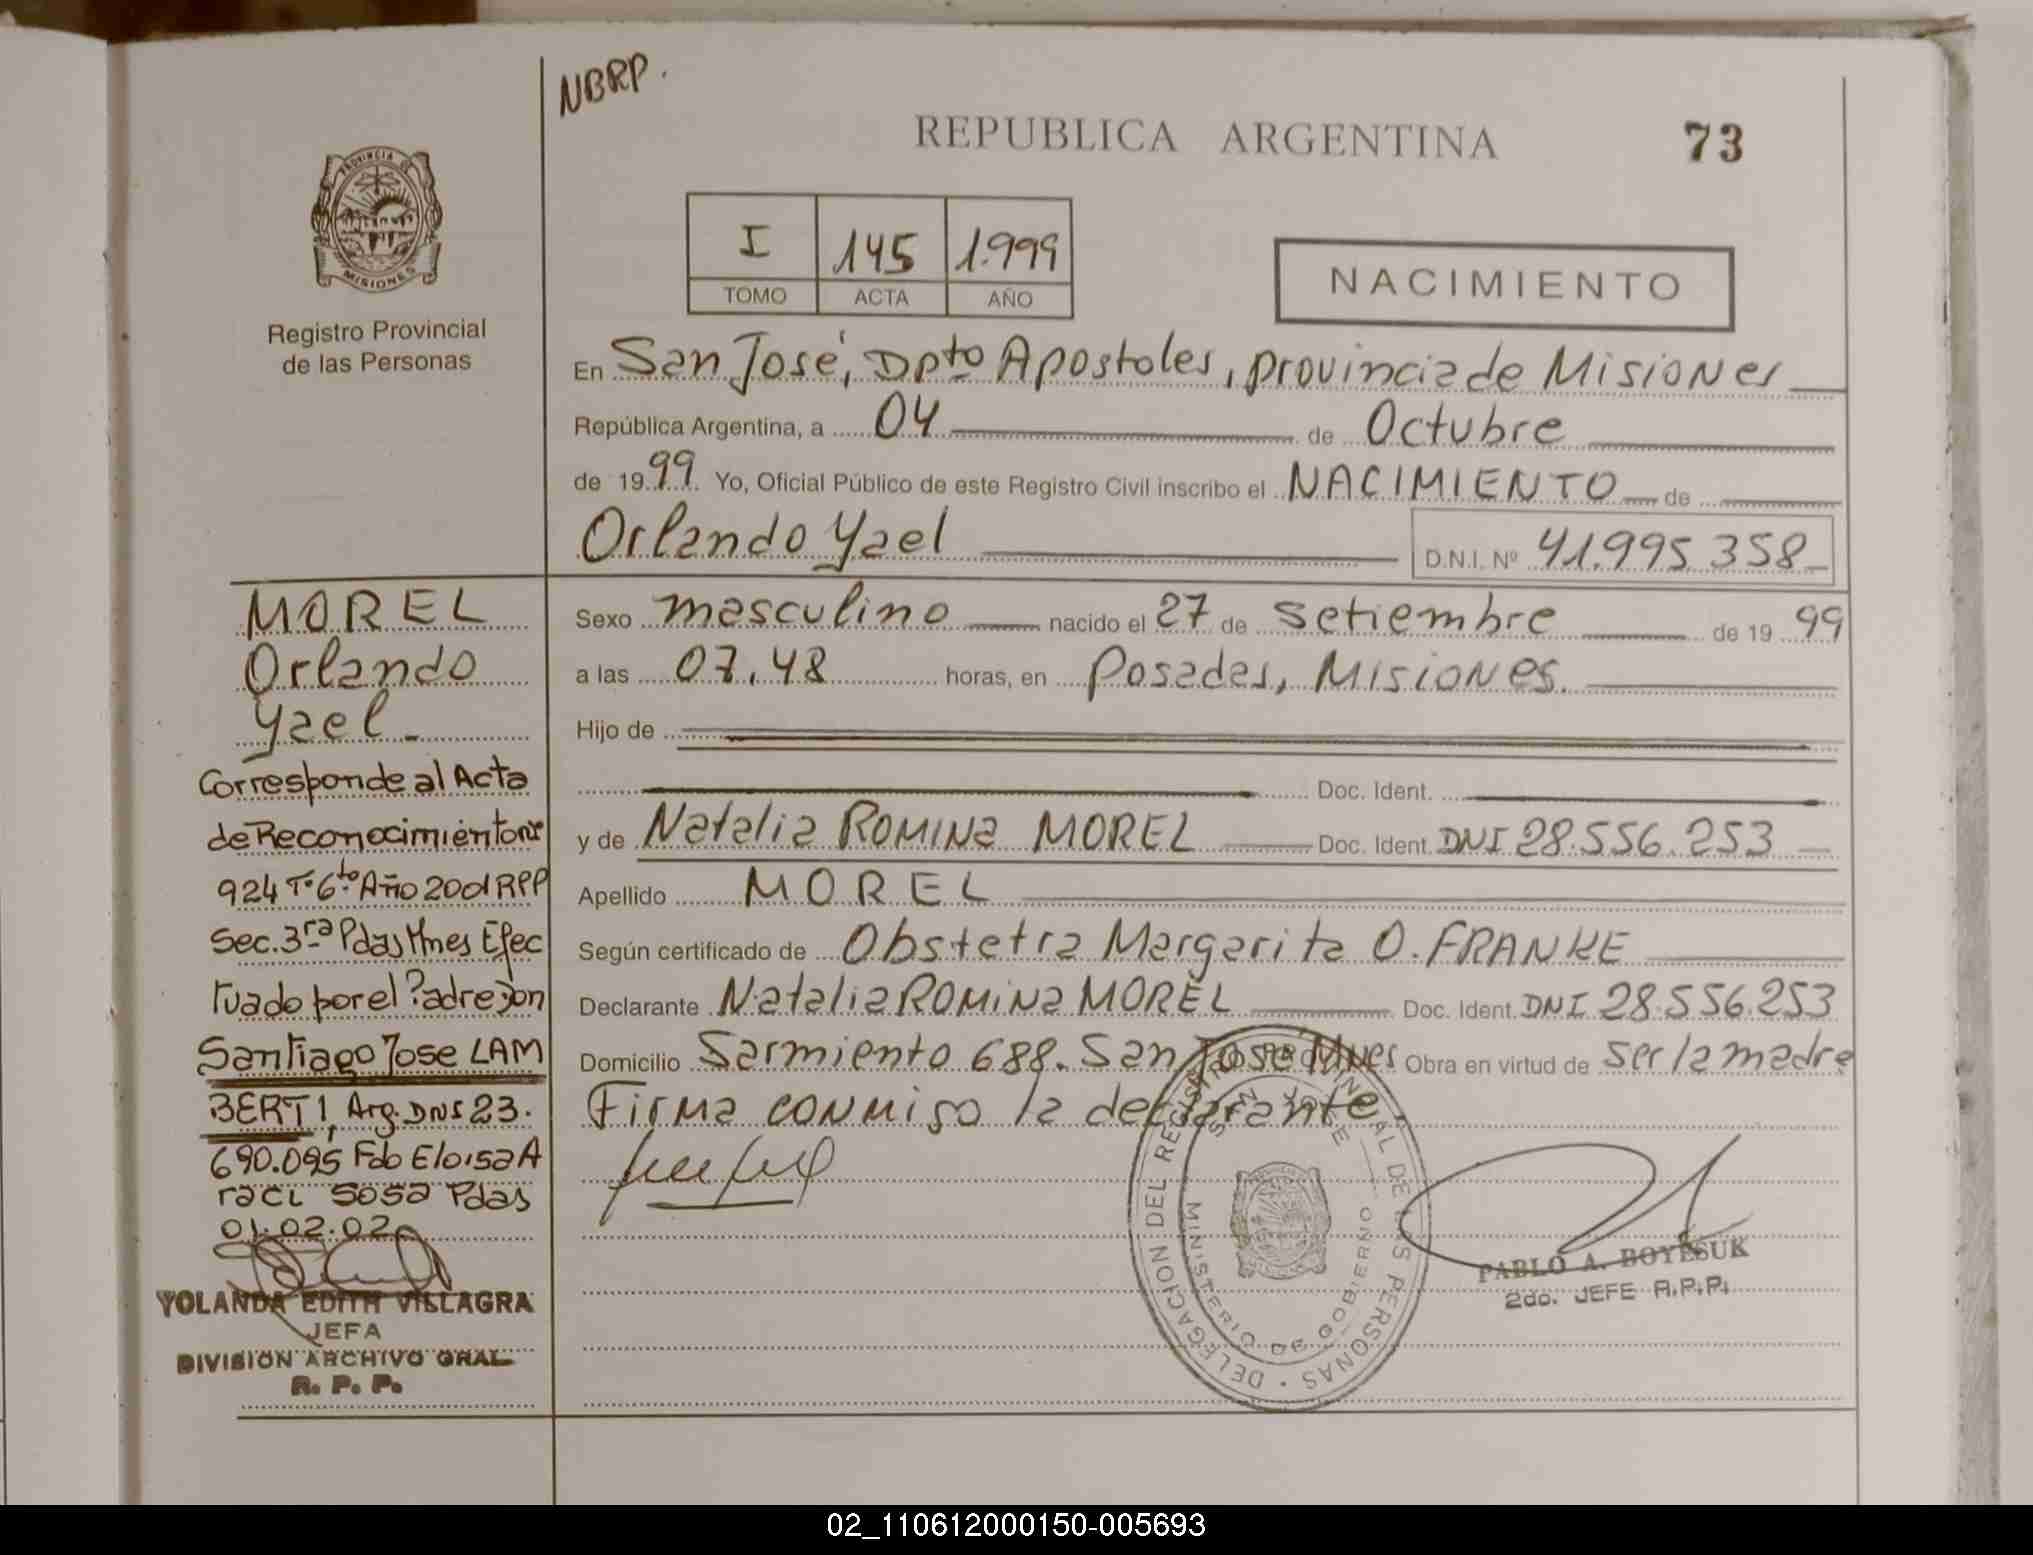 NBRP.
REPUBLICA ARGENTINA
73
PROVINCIA DE
MISIONES
Registro Provincial
de las Personas
I 145 1.999
TOMO ACTA AÑO
NACIMIENTO
En San José, Dpto Apostoles, provincia de Misiones
República Argentina, a 04 de Octubre
de 1999. Yo, Oficial Público de este Registro Civil inscribo el NACIMIENTO de
Orlando Yael D.N.I. Nº 41.995.358
Sexo masculino nacido el 27 de setiembre de 1999
a las 07,48 horas, en Posadas, Misiones.
Hijo de
Doc. Ident.
y de Natalia Romina MOREL Doc. Ident. DNI 28.556.253
Apellido MOREL
Según certificado de Obstetra Margarita O. FRANKE
Declarante Natalia Romina MOREL Doc. Ident. DNI 28.556.253
Domicilio Sarmiento 688. San Jose Mnes Obra en virtud de ser la madre
Firma conmigo la declarante.
MOREL
Orlando
Yael
Corresponde al Acta
de Reconocimiento nº
924 Tº 6to Año 2001 RPP
Sec. 3ra Pdas Mnes Efec
tuado por el Padre Don
Santiago Jose LAM
BERTI, Arg. DNI 23.
690.095 Fdo Eloisa A
raci Sosa Pdas
01.02.02
YOLANDA EDITH VILLAGRA
JEFA
DIVISION ARCHIVO GRAL
R. P. P.
DELEGACION DEL REGISTRO PROVINCIAL DE LAS PERSONAS
SAN JOSE
MINISTERIO DE GOBIERNO
PABLO A. BOYESUK
2do. JEFE R.P.P.
02_110612000150-005693